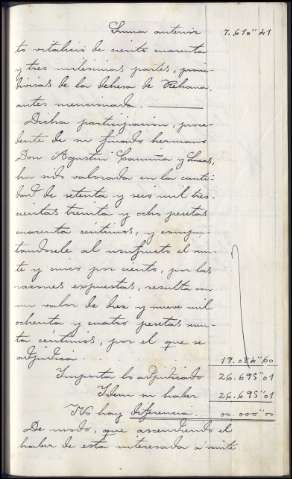 Suma anterior 7.610"41
to vitalicio de ciento cuarenta
y tres milésimas partes, proin-
divisas de la dehesa de
antes mencionada.
Dicha participación, proce-
dente de su finado hermano
Don Agustin
ha sido valorada en la canti-
dad de setenta y seis mil tres-
cientas treinta y ocho pesetas
cuarenta céntimos, y compu-
tandosele al usufructo el vein-
te y cinco por ciento, por las
razones expuestas, resulta con
un valor de diez y nueve mil
ochenta y cuatro pesetas sesen-
ta céntimos, por el que se
adjudica ... 19.084"60
Importa lo adjudicado 26.695"01
Idem su haber 26.695"01
No hay diferencia 00.000"00
De modo, que ascendiendo el
haber de esta interesada a veinte